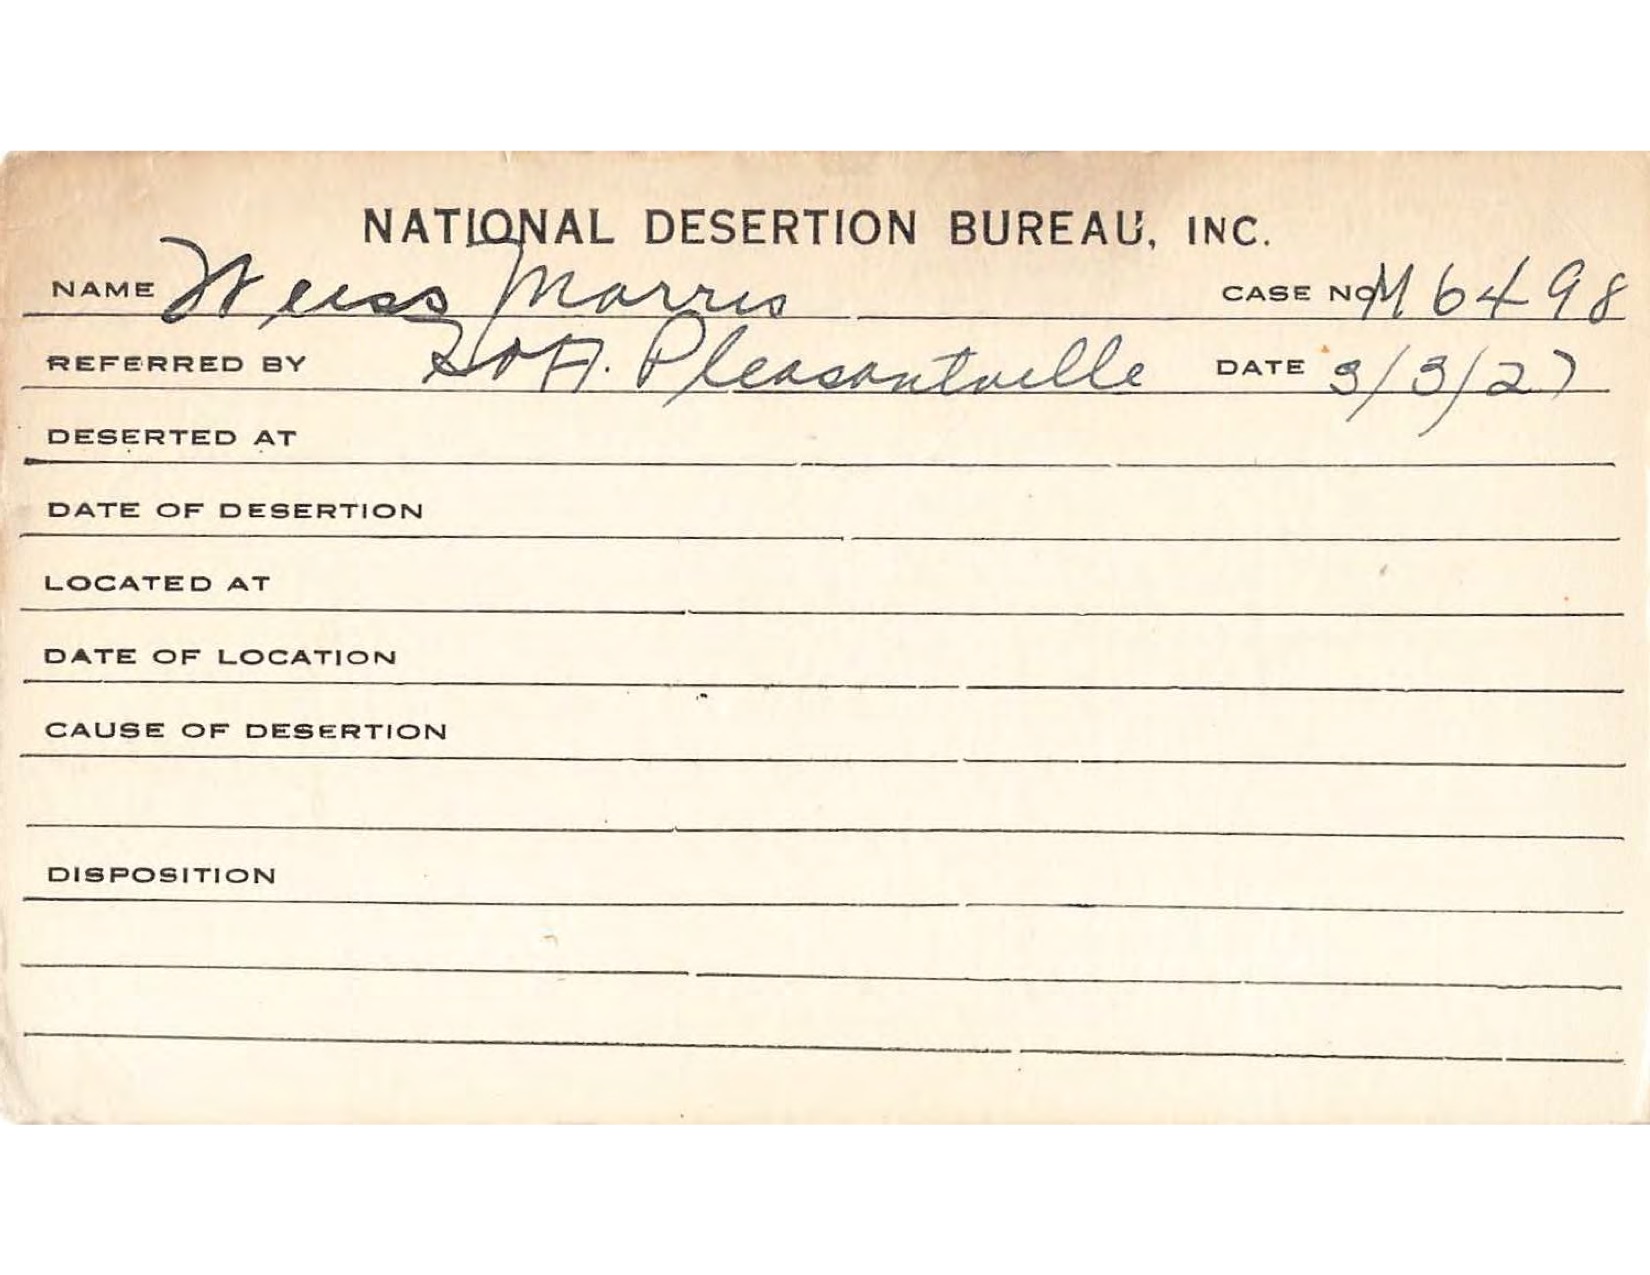 NATIONAL DESERTION BUREAU, INC.
NAME Weiss Morris CASE NO. M6498
REFERRED BY Pleasantville DATE 3/3/27
DESERTED AT
DATE OF DESERTION
LOCATED AT
DATE OF LOCATION
CAUSE OF DESERTION
DISPOSITION